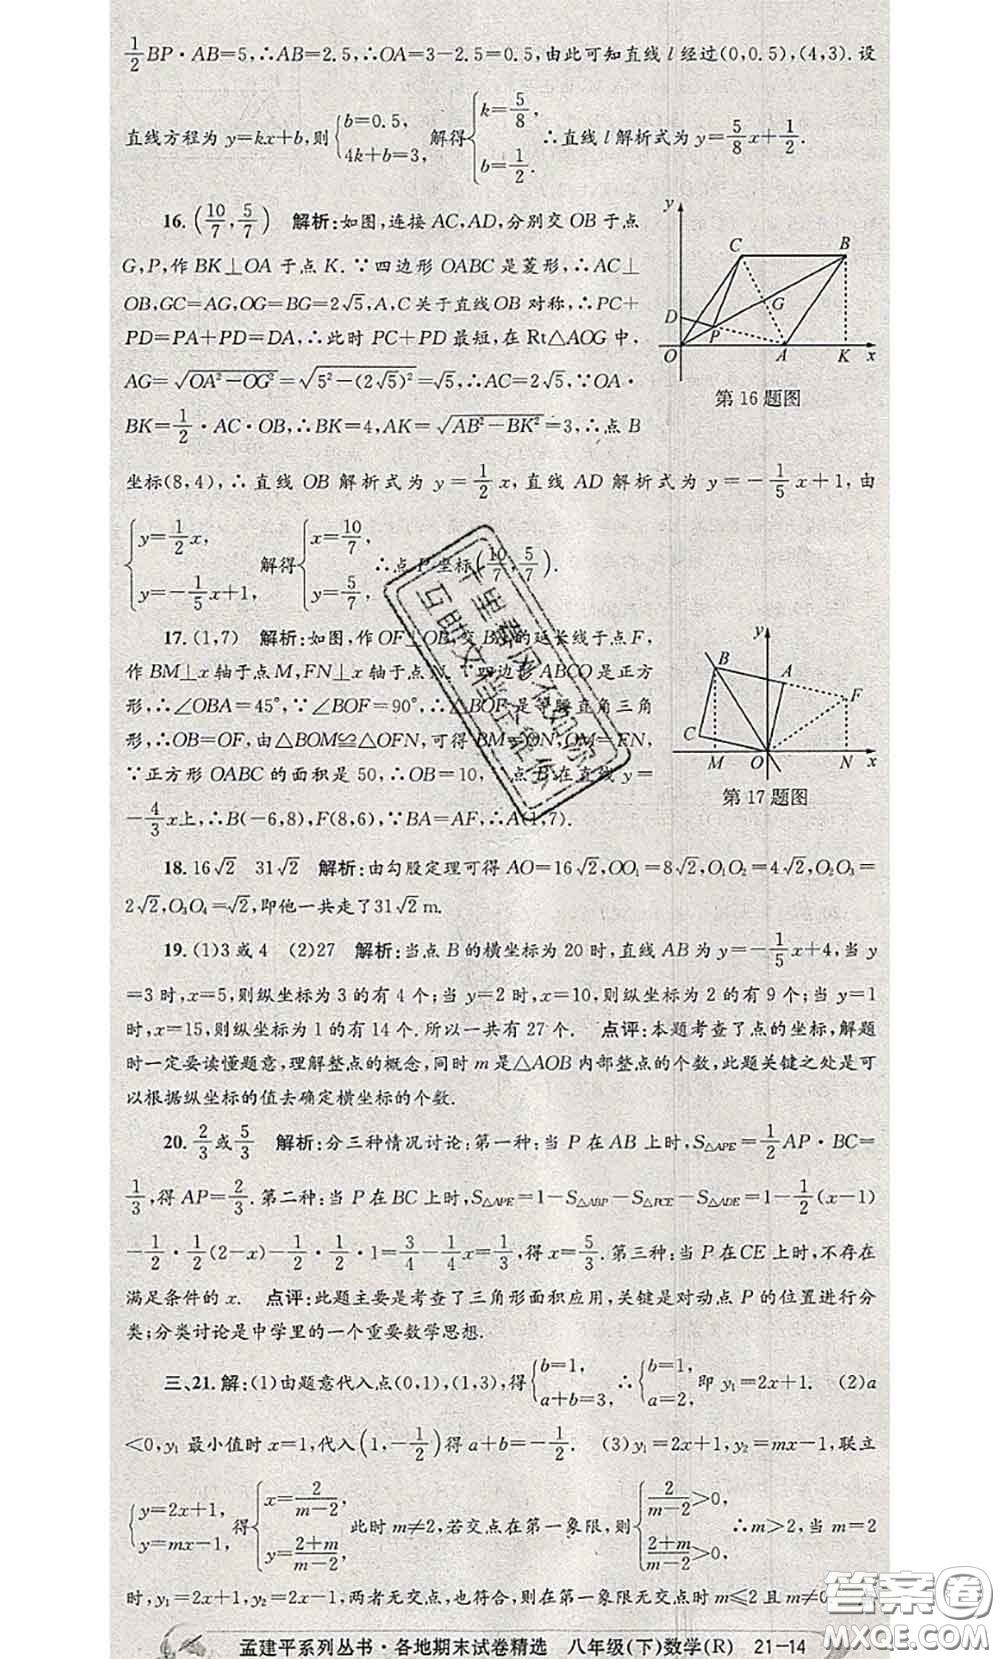 1/2 BP·AB=5,∴AB=2.5,∴OA=3-2.5=0.5,由此可知直线 l 经过(0,0.5),(4,3).设
直线方程为 y=kx+b,则{b=0.5, 4k+b=3, 解得{k=5/8, b=1/2. ∴直线 l 解析式为 y=5/8x+1/2.
16.(10/7,5/7) 解析:如图,连接 AC,AD,分别交 OB 于点
G,P,作 BK⊥OA 于点 K.∵四边形 OABC 是菱形,∴AC⊥
OB,GC=AG,OG=BG=2√5,A,C 关于直线 OB 对称,∴PC+
PD=PA+PD=DA,∴此时 PC+PD 最短,在 Rt△AOG 中,
AG=√(OA²-OG²)=√(5²-(2√5)²)=√5,∴AC=2√5,∵OA·
BK=1/2·AC·OB,∴BK=4,AK=√(AB²-BK²)=3,∴点 B
坐标(8,4),∴直线 OB 解析式为 y=1/2x,直线 AD 解析式为 y=-1/5x+1,由
{y=1/2x, y=-1/5x+1, 解得{x=10/7, y=5/7, ∴点 P 坐标(10/7,5/7).
y
C
B
D
G
P
O
A
K
x
第16题图
17.(1,7) 解析:如图,作 OF⊥OB 交 BA 的延长线于点 F,
作 BM⊥x 轴于点 M,FN⊥x 轴于点 N.∵四边形 ABCO 是正方
形,∴∠OBA=45°,∵∠BOF=90°,∴△BOF 是等腰直角三角
形,∴OB=OF,由△BOM≌△OFN,可得 BM=ON,OM=FN,
∵正方形 OABC 的面积是 50,∴OB=10,∵点 B 在直线 y=
-4/3x上,∴B(-6,8),F(8,6),∵BA=AF,∴A(1,7).
y
B
A
F
C
M
O
N
x
第17题图
18.16√2 31√2 解析:由勾股定理可得 AO=16√2,OO₁=8√2,O₁O₂=4√2,O₂O₃=
2√2,O₃O₄=√2,即他一共走了31√2 m.
19.(1)3 或 4 (2)27 解析:当点 B 的横坐标为 20 时,直线 AB 为 y=-1/5x+4,当 y
=3 时,x=5,则纵坐标为 3 的有 4 个;当 y=2 时,x=10,则纵坐标为 2 的有 9 个;当 y=1
时,x=15,则纵坐标为 1 的有 14 个.所以一共有 27 个. 点评:本题考查了点的坐标,解题
时一定要读懂题意,理解整点的概念,同时 m 是△AOB 内部整点的个数,此题关键之处是可
以根据纵坐标的值去确定横坐标的个数.
20.2/3或5/3 解析:分三种情况讨论:第一种:当 P 在 AB 上时,S△APE=1/2AP·BC=
1/3,得 AP=2/3.第二种:当 P 在 BC 上时,S△APE=1-S△ABP-S△PCE-S△ADE=1-1/2(x-1)
-1/2·1/2(2-x)-1/2·1/2·1=3/4-1/4x=1/3,得 x=5/3.第三种:当 P 在 CE 上时,不存在
满足条件的 x. 点评:此题主要是考查了三角形面积应用,关键是对动点 P 的位置进行分
类;分类讨论是中学里的一个重要数学思想.
三、21.解:(1)由题意代入点(0,1),(1,3),得{b=1, a+b=3, ∴{b=1, a=2, 即 y₁=2x+1. (2)a
<0,y₁ 最小值时 x=1,代入(1,-1/2)得 a+b=-1/2. (3)y₁=2x+1,y₂=mx-1,联立
{y=2x+1, y=mx-1, 得{x=2/(m-2), y=(2+m)/(m-2), 此时 m≠2,若交点在第一象限,则{2/(m-2)>0, (2+m)/(m-2)>0 ∴m>2,当 m=2
时,y₁=2x+1,y₂=2x-1,两者无交点,也符合,则在第一象限无交点时 m≤2 且 m≠0
孟建平系列丛书·各地期末试卷精选 八年级(下)数学(R) 21-14
千里春风不如你
互助文档全靠你
答案圈
MXQE.COM